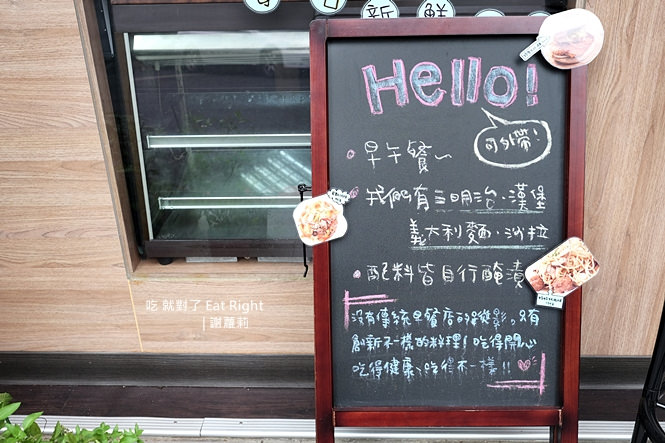 新鮮
Hello!
可外帶!
早午餐~
我們有三明治、漢堡
義大利麵、沙拉
配料皆自行醃漬
沒有傳統早餐店的縮影，只有
創新不一樣的料理！吃得開心
吃得健康、吃得不一樣!!
吃 就對了 Eat Right
| 謝蘿莉